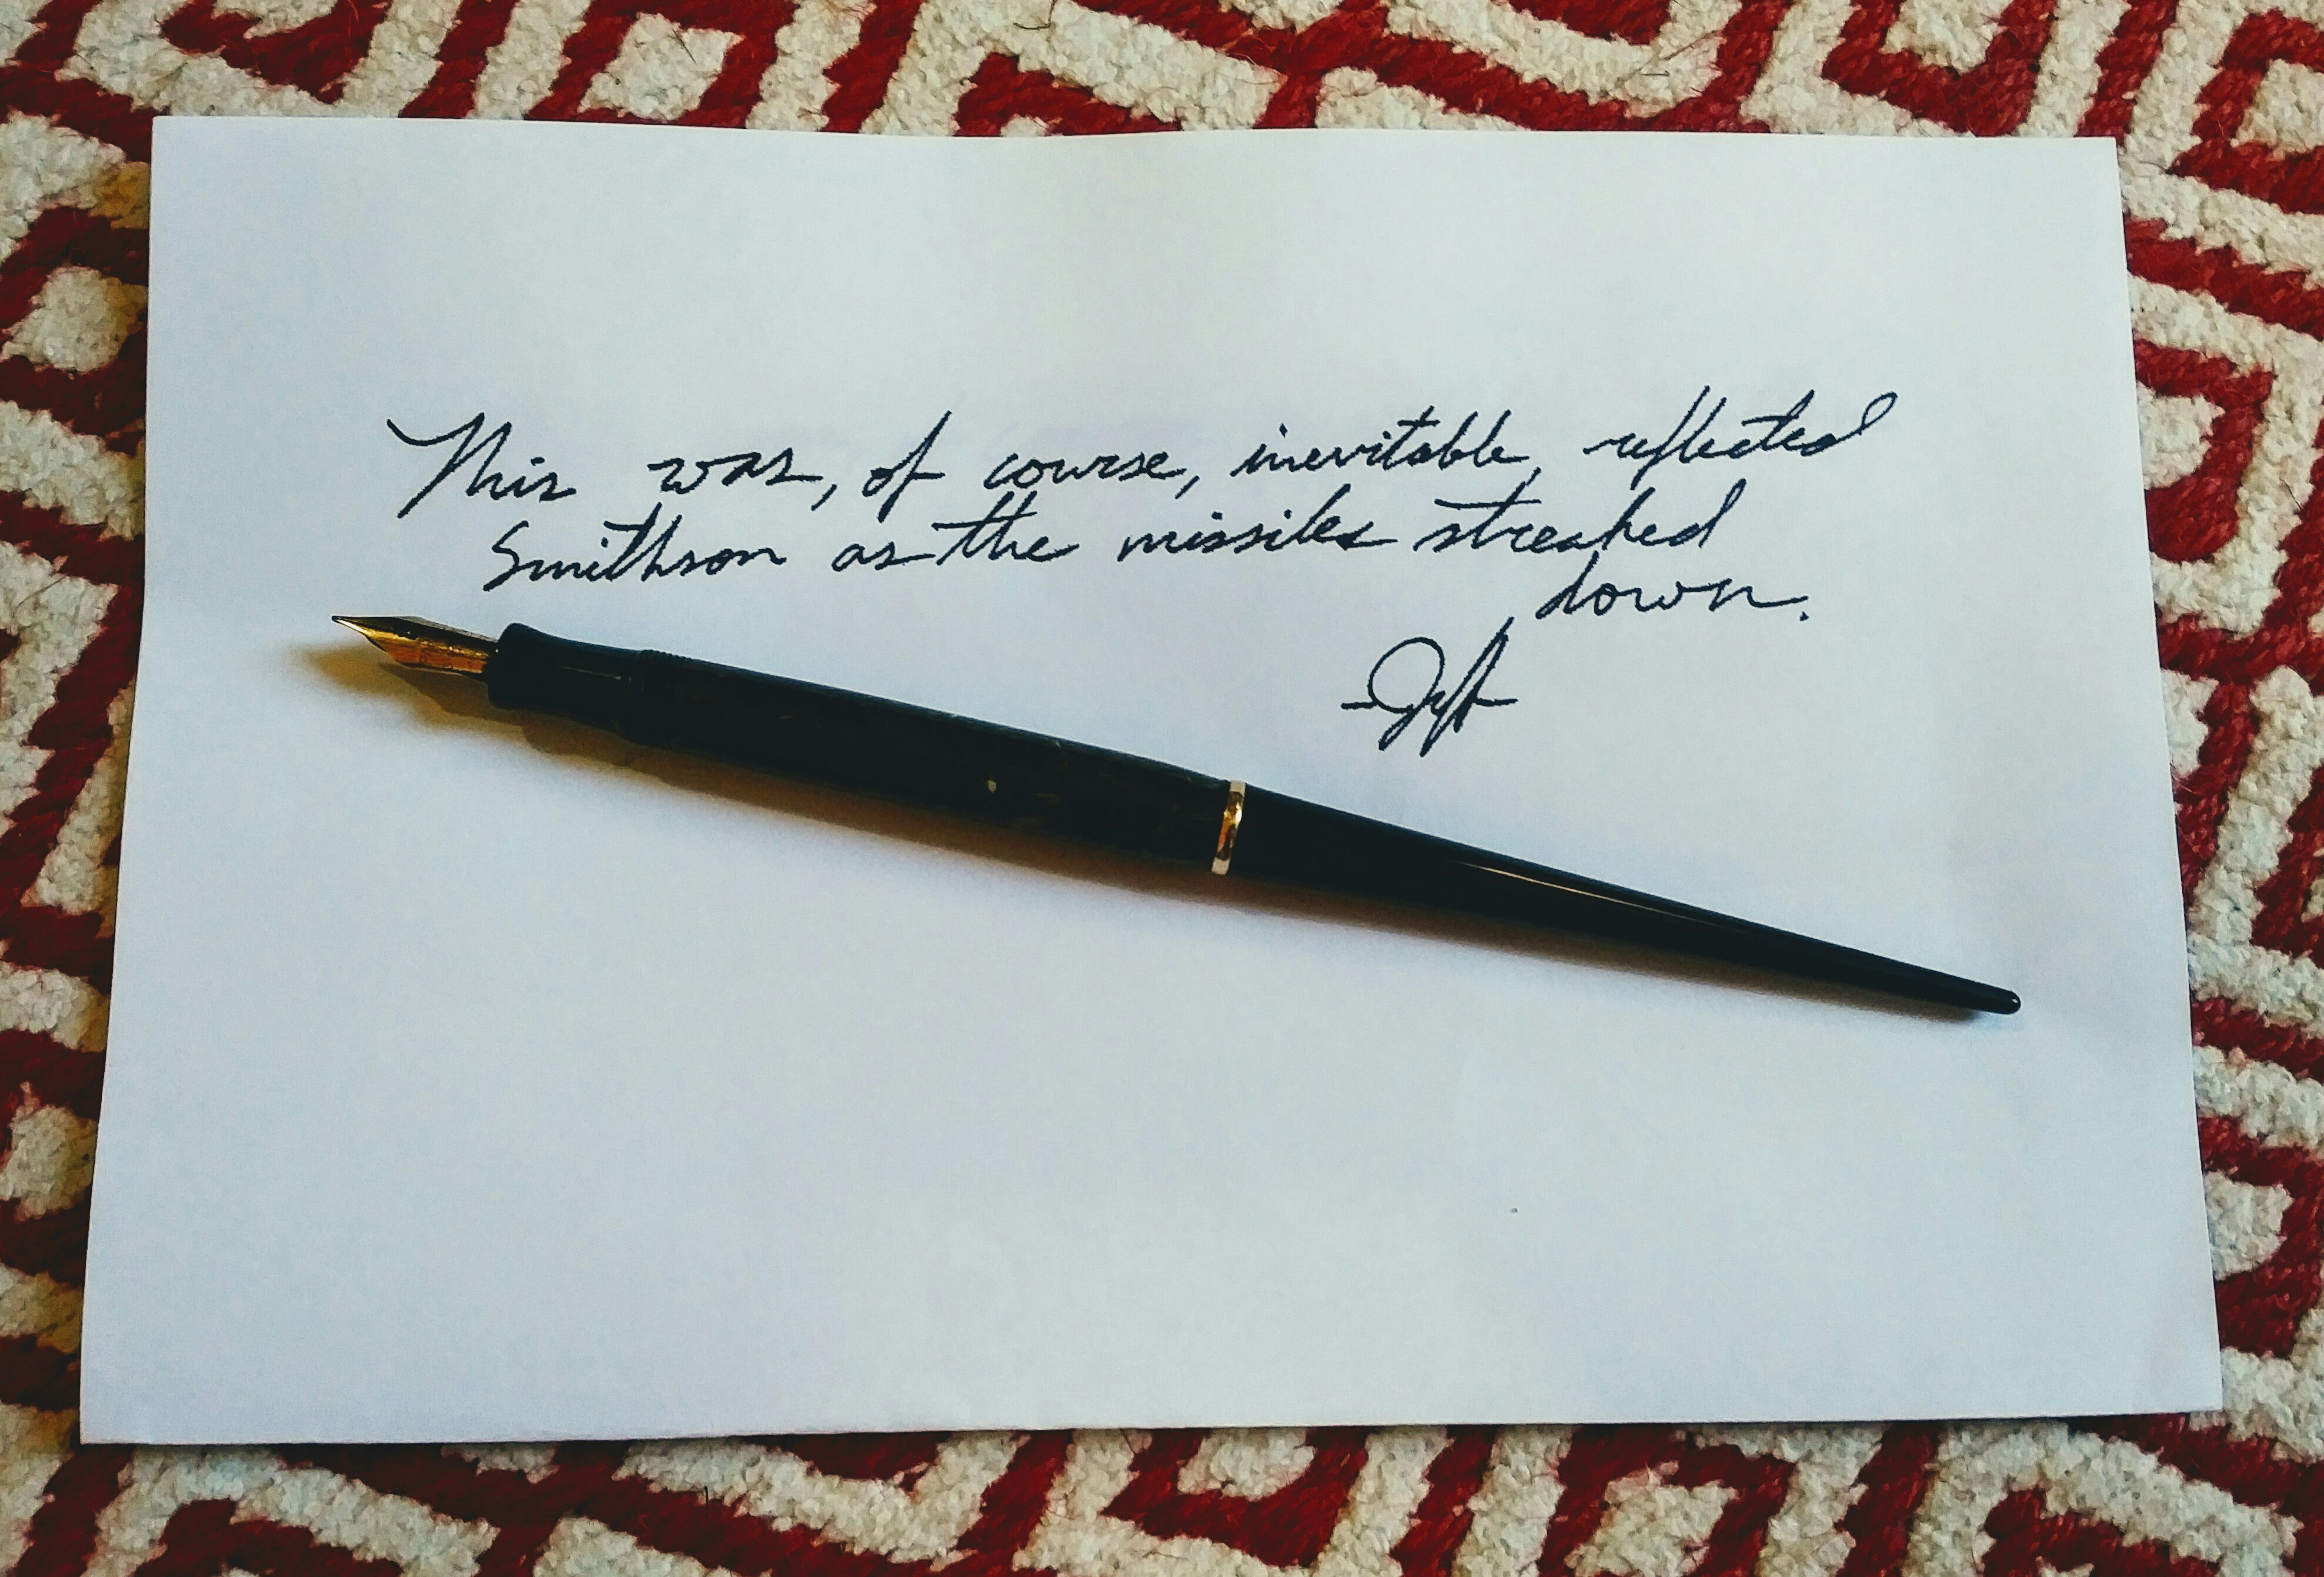 This was, of course, inevitable, reflected
Smithson as the missiles streaked
down.
-Jeff